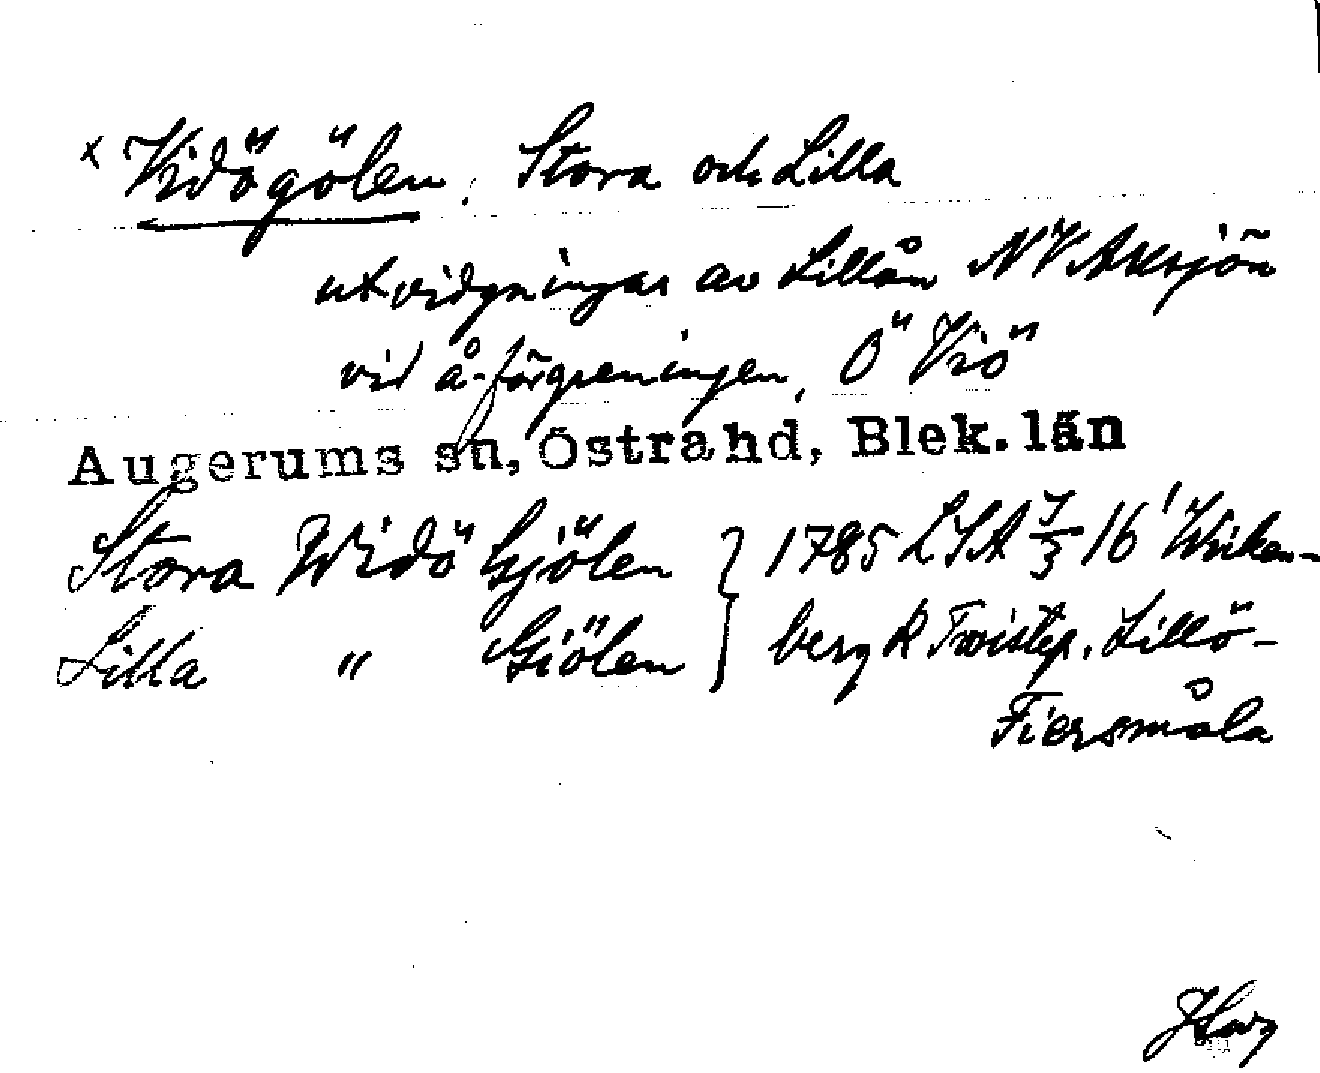 x Vidögölen, Stora och Lilla
utvidgningar av Lillån NV Allsjön
vid å-förgreningen, Ö Viö
Augerums sn, Östra hd, Blek. län
Stora Widö Gjölen } 1785 LSA 7/3 16 Wriken-
Lilla " Giölen } berg R Twistep. Lillö-
Fiersmåla